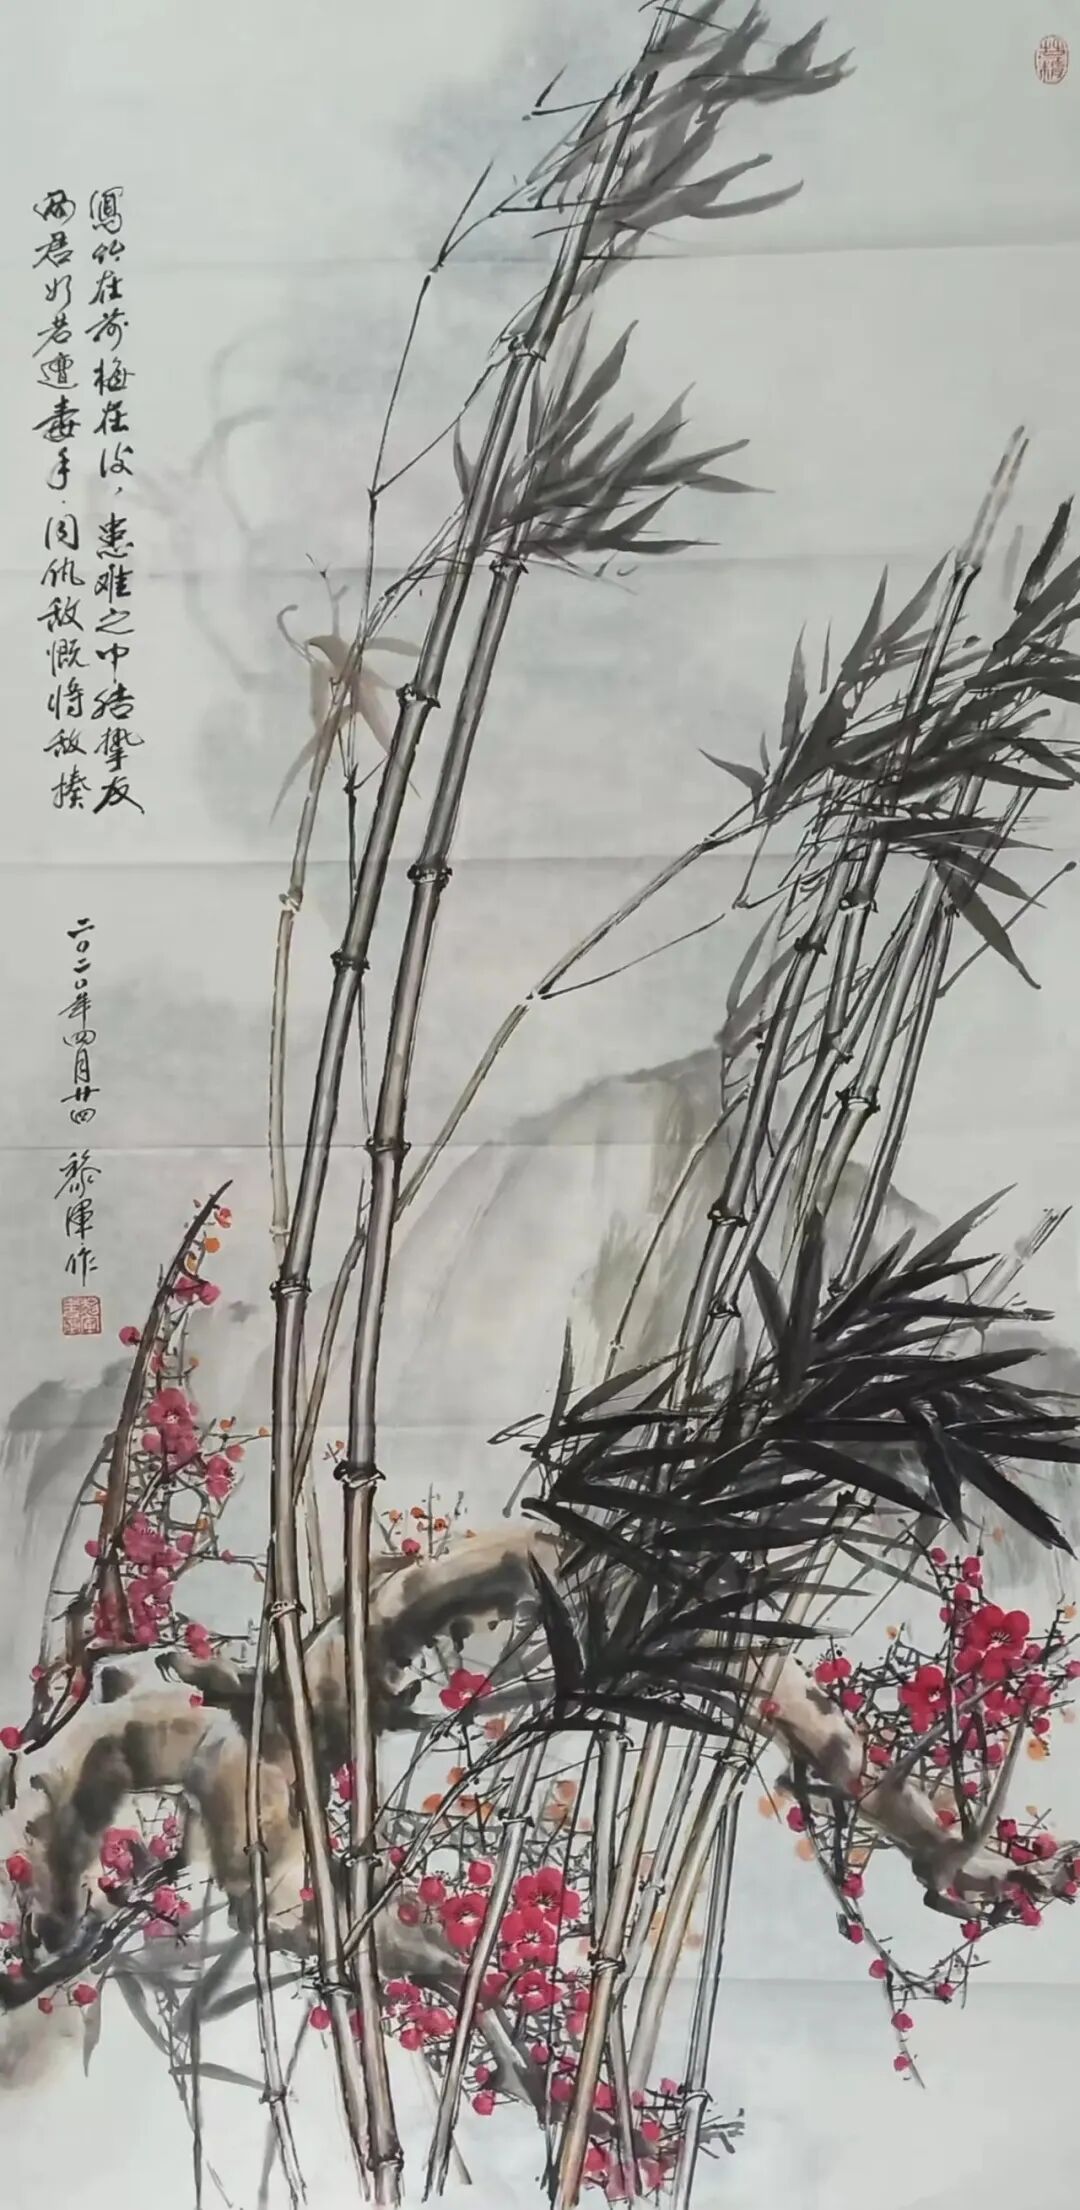 寫竹在前梅在後，患难之中结挚友
两君如若遭毒手·同仇敌慨将敌揍
二〇二〇年四月廿四 黎渾作